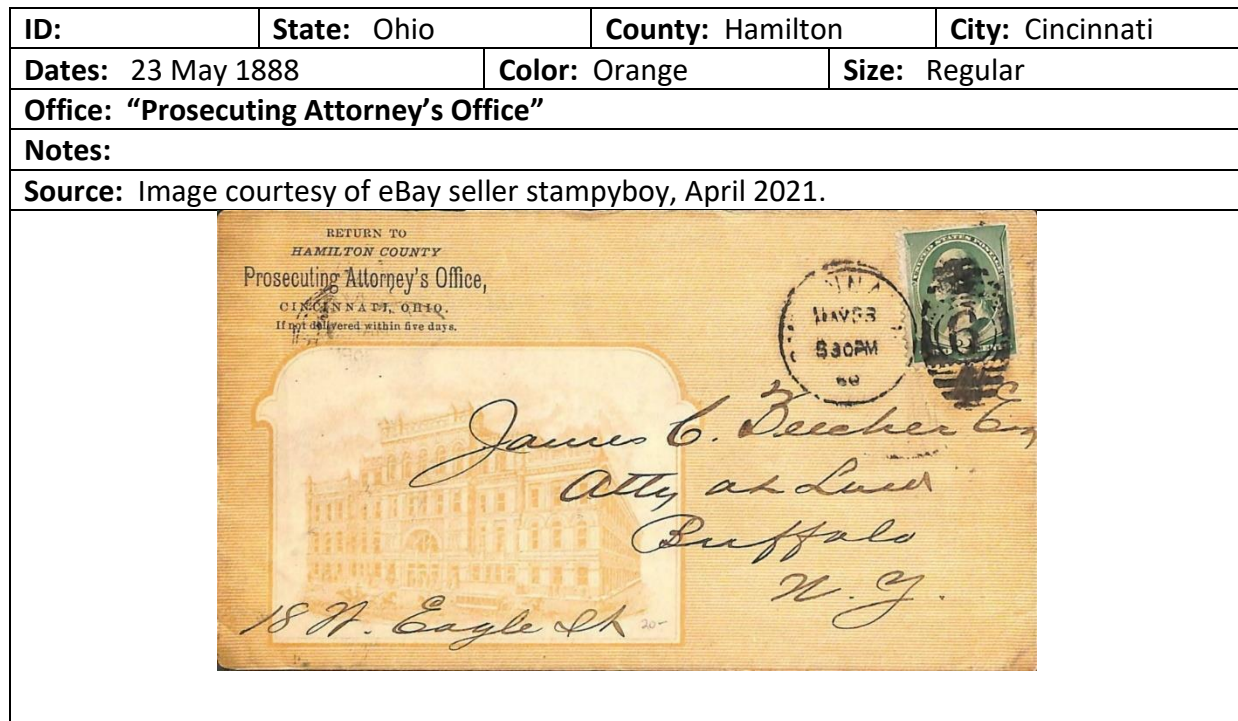 ID: State: Ohio County: Hamilton City: Cincinnati
Dates: 23 May 1888 Color: Orange Size: Regular
Office: “Prosecuting Attorney’s Office”
Notes:
Source: Image courtesy of eBay seller stampyboy, April 2021.
RETURN TO
HAMILTON COUNTY
Prosecuting Attorney's Office,
CINCINNATI, OHIO.
If not delivered within five days.
UNITED STATES POSTAGE
MAY 23
530PM
James C. Beecher Esq
Atty at Law
Buffalo
N. Y.
18 W. Eagle St
20-